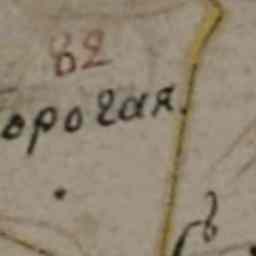 82
орогая.